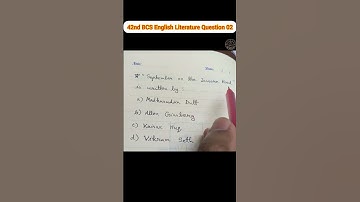 42nd BCS English Literature Question 02
Date:
* "September on the Jessore Road"
is written by:
a) Madhusudan Dutt
b) Allen Ginsberg
c) Kaiser Huq
d) Vikram Seth